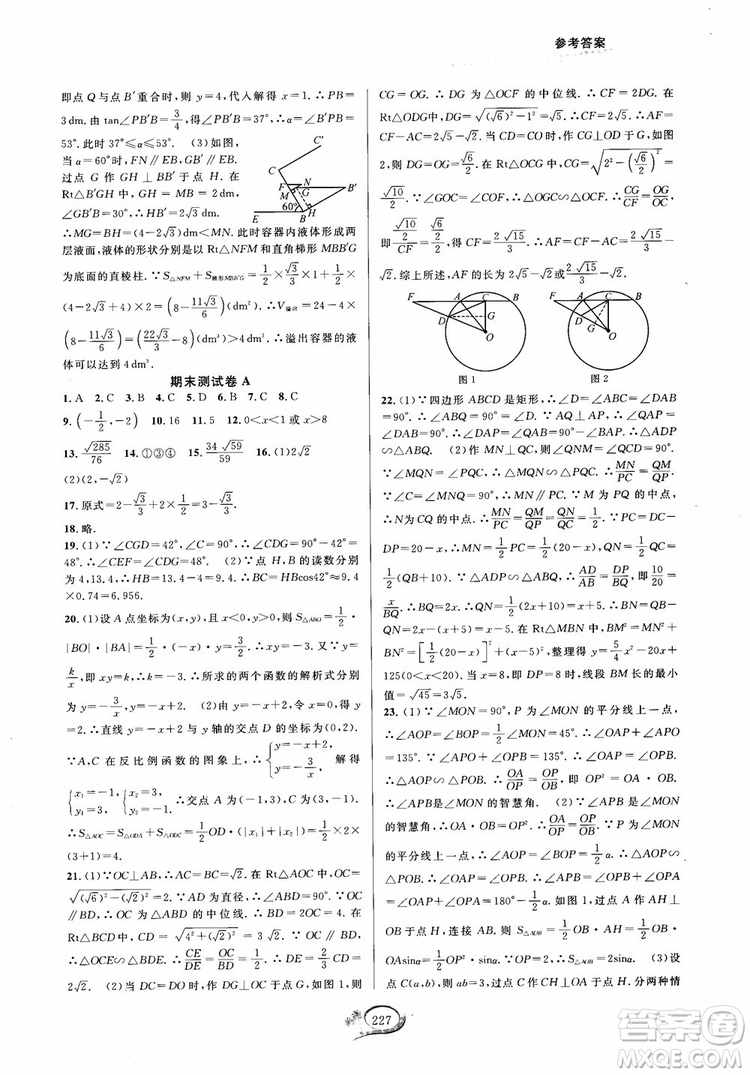 参考答案
即点 Q 与点 B′重合时,则 y=4,代入解得 x=1. ∴PB=
3 dm. 由 tan∠PB′B=3/4,得∠PB′B=37°,∴α=∠B′PB=
53°. 此时 37°≤α≤53°. (3)如图,
当 α=60°时,FN∥EB,GB′∥EB.
过点 G 作 GH⊥BB′于点 H. 在
Rt△B′GH 中,GH=MB=2 dm,
∠GB′B=30°,∴HB′=2√3 dm.
∴MG=BH=(4-2√3)dm<MN. 此时容器内液体形成两
层液面,液体的形状分别是以 Rt△NFM 和直角梯形 MBB′G
为底面的直棱柱. ∵S△NFM+S梯形MBB′G=1/2×√3/3×1+1/2×
(4-2√3+4)×2=(8-11√3/6)(dm²). ∴V溢出=24-4×
(8-11√3/6)=(22√3/3-8)(dm³). ∴溢出容器的液
体可以达到 4dm³.
C
C′
F
N
M
G
B′
60°
E
B
H
期末测试卷 A
1. A 2. C 3. C 4. D 5. D 6. C 7. C 8. C
9. (-1/2,-2) 10. 16 11. 2 12. 0<x<1 或 x>8
13. √285/76 14. ①③④ 15. 34√59/59 16. (1)2√2
(2)(2,-√2)
18. 略.
19. (1)∵∠CGD=42°,∠C=90°,∴∠CDG=
48°. ∴∠CEF=∠CDG=48°. (2)∵点 H、B 的读数分别
为 4,13.4,∴HB=13.4-4=9.4. ∴BC=HBcos42°≈9.4
×0.74≈6.956.
20. (1)设 A 点坐标为(x,y),且 x<0,y>0. 则 S△ABO=1/2·
|BO|·|BA|=1/2·(-x)·y=3/2,∴xy=-3. 又∵y=
k/x,即 xy=k,∴k=-3. ∴所求的两个函数的解析式分别
为 y=-3/x,y=-x+2. (2)由 y=-x+2,令 x=0,得
y=2. ∴直线 y=-x+2 与 y 轴的交点 D 的坐标为(0,2).
∵A、C 在反比例函数的图象上,∴{y=-x+2, y=-3/x. 解得
{x₁=-1, y₁=3; {x₂=3, y₂=-1. ∴交点 A 为(-1,3),C 为(3,-1).
∴S△AOC=S△AOD+S△ODC=1/2OD·(|x₁|+|x₂|)=1/2×2×
(3+1)=4.
21. (1)∵OC⊥AB,AB=2√2,∴AC=√2. 在 Rt△AOC 中,OC
=√((√6)²-(√2)²)=2. ∵AD 为直径,∴∠ABD=90°. ∴OC
∥BD,∴OC 为△ABD 的中位线. ∴BD=2OC=4. 在
Rt△BCD 中,CD=√(4²+(√2)²)=3√2. ∵OC∥BD,
∴△OCE∽△BDE. ∴CE/DE=OC/BD. ∴CE/DE=2/4. ∴DE=
2√2. (2)当 DC=DO 时,作 DG⊥OC 于点 G,如图 1,则
CG=OG. ∴DG 为△OCF 的中位线. ∴CF=2DG. 在
Rt△ODG 中,DG=√((√6)²-1²)=√5. ∴CF=2√5. ∴AF=
CF-AC=2√5-√2. 当 CD=CO 时,作 CG⊥OD 于 G,如图
2,则 DG=OG=√6/2. 在 Rt△OCG 中,CG=√(2²-(√6/2)²)=
√10/2. ∵∠GOC=∠COF,∴△OGC∽△OCF. ∴CG/CF=OG/OC.
即 (√10/2)/CF=(√6/2)/2. ∴CF=2√15/3. ∴AF=CF-AC=2√15/3-
√2. 综上所述,AF 的长为 2√5-√2 或 2√15/3-√2.
F
A
C
B
D
G
O
图 1
F
A
C
B
D
G
O
图 2
22. (1)∵四边形 ABCD 是矩形,∴∠DAB=∠ABC=90°.
∴∠ABQ=90°=∠D. ∵AQ⊥AP,∴∠QAP=90°=
∠DAB=90°. ∴∠DAP=∠BAQ. ∴△ADP∽△ABQ.
(2)作 MN⊥QC,则∠QNM=90°=∠QCD. 又
∵∠MQN=∠PQC,∴△MQN∽△PQC. ∴MN/PC=QM/QP=
QN/QC. ∵∠MNQ=∠PCQ=90°,∴MN∥PC. ∵M 为 PQ 的中点,
∴N 为 CQ 的中点. ∴MN/PC=QM/QP=QN/QC=1/2. 又∵PC=DC-
DP=20-x,∴MN=1/2PC=1/2(20-x). ∴QN=1/2QC=
1/2(QB+BC)=1/2(QB+10). ∵△ADP∽△ABQ,∴AD/AB=DP/BQ. ∴10/20=
x/BQ. ∴BQ=2x. ∴QN=1/2(2x+10)=x+5. ∵BN=QB-
QN=2x-(x+5)=x-5. 在 Rt△MBN 中,BM²=MN²+
BN²=[1/2(20-x)]²+(x-5)²,整理得 y=5/4x²-20x+
125(0<x<20). ∴当 x=8,即 DP=8 时,线段 BM 长的最小
值=√45=3√5.
23. (1)∵∠MON=90°,P 为∠MON 的平分线上一点,
∴∠AOP=∠BOP=1/2∠MON=45°. ∵∠AOP+∠OAP+
∠APO=180°,∴∠OAP+∠APO=135°. ∵∠APB=
135°,∴∠APO+∠OPB=135°. ∴∠OAP=∠OPB.
∴△AOP∽△POB. ∴OA/OP=OP/OB. 即 OP²=OA·OB.
∴∠APB 是∠MON 的智慧角. (2)∵∠APB 是∠MON
的智慧角,∴OA·OB=OP²,∴OA/OP=OP/OB. ∵P 为∠MON
的平分线上一点,∴∠AOP=∠BOP=1/2α. ∴△AOP
∽△POB. ∴∠OAP=∠OPB. ∴∠APB=∠OPB+∠OPA=
∠OAP+∠OPA=180°-1/2α. 过点 A 作 AH⊥
OB 于点 H,连接 AB,∴S△AOB=1/2OB·AH=1/2OB·
OAsinα=1/2OP²·sinα. ∵OP=2,∴S△AOB=2sinα. (3)设
点 C(a,b),则 ab=3,过点 C 作 CH⊥OA 于点 H. 分两种情
227
答案圈
MXQE.COM